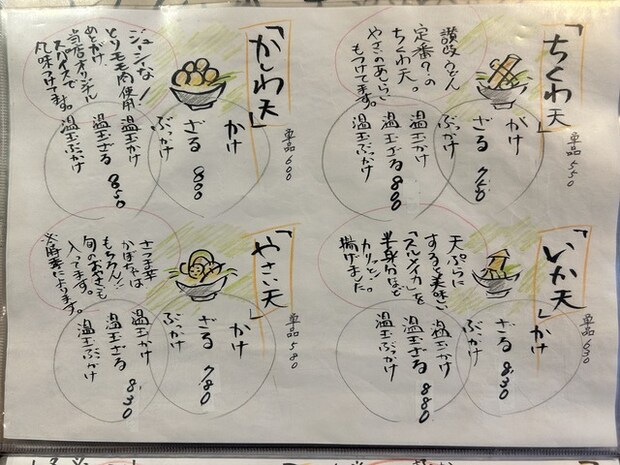 「ちくわ天」
単品 550
讃岐うどん
定番?の
ちくわ天。
やさいのあらい
もつけてます。
かけ
ざる 750
ぶっかけ
温玉かけ
温玉ざる 800
温玉ぶっかけ
「かしわ天」
単品 600
ジューシーな!
とりモモ肉使用
めとがけ
当店オリジナル
スパイスで
風味つけてます。
かけ
ざる 800
ぶっかけ
温玉かけ
温玉ざる 850
温玉ぶっかけ
「いか天」
単品 630
天ぷらに
すると美味しい
「スルメイカ」を
半身分ほど
カリッと。
揚げました
かけ
ざる 830
ぶっかけ
温玉かけ
温玉ざる 880
温玉ぶっかけ
「やさい天」
単品 580
さつま芋
かぼちゃは
もちろん!
旬のおやさいも
入ってます。
※時季によります。
かけ
ざる 780
ぶっかけ
温玉かけ
温玉ざる 830
温玉ぶっかけ